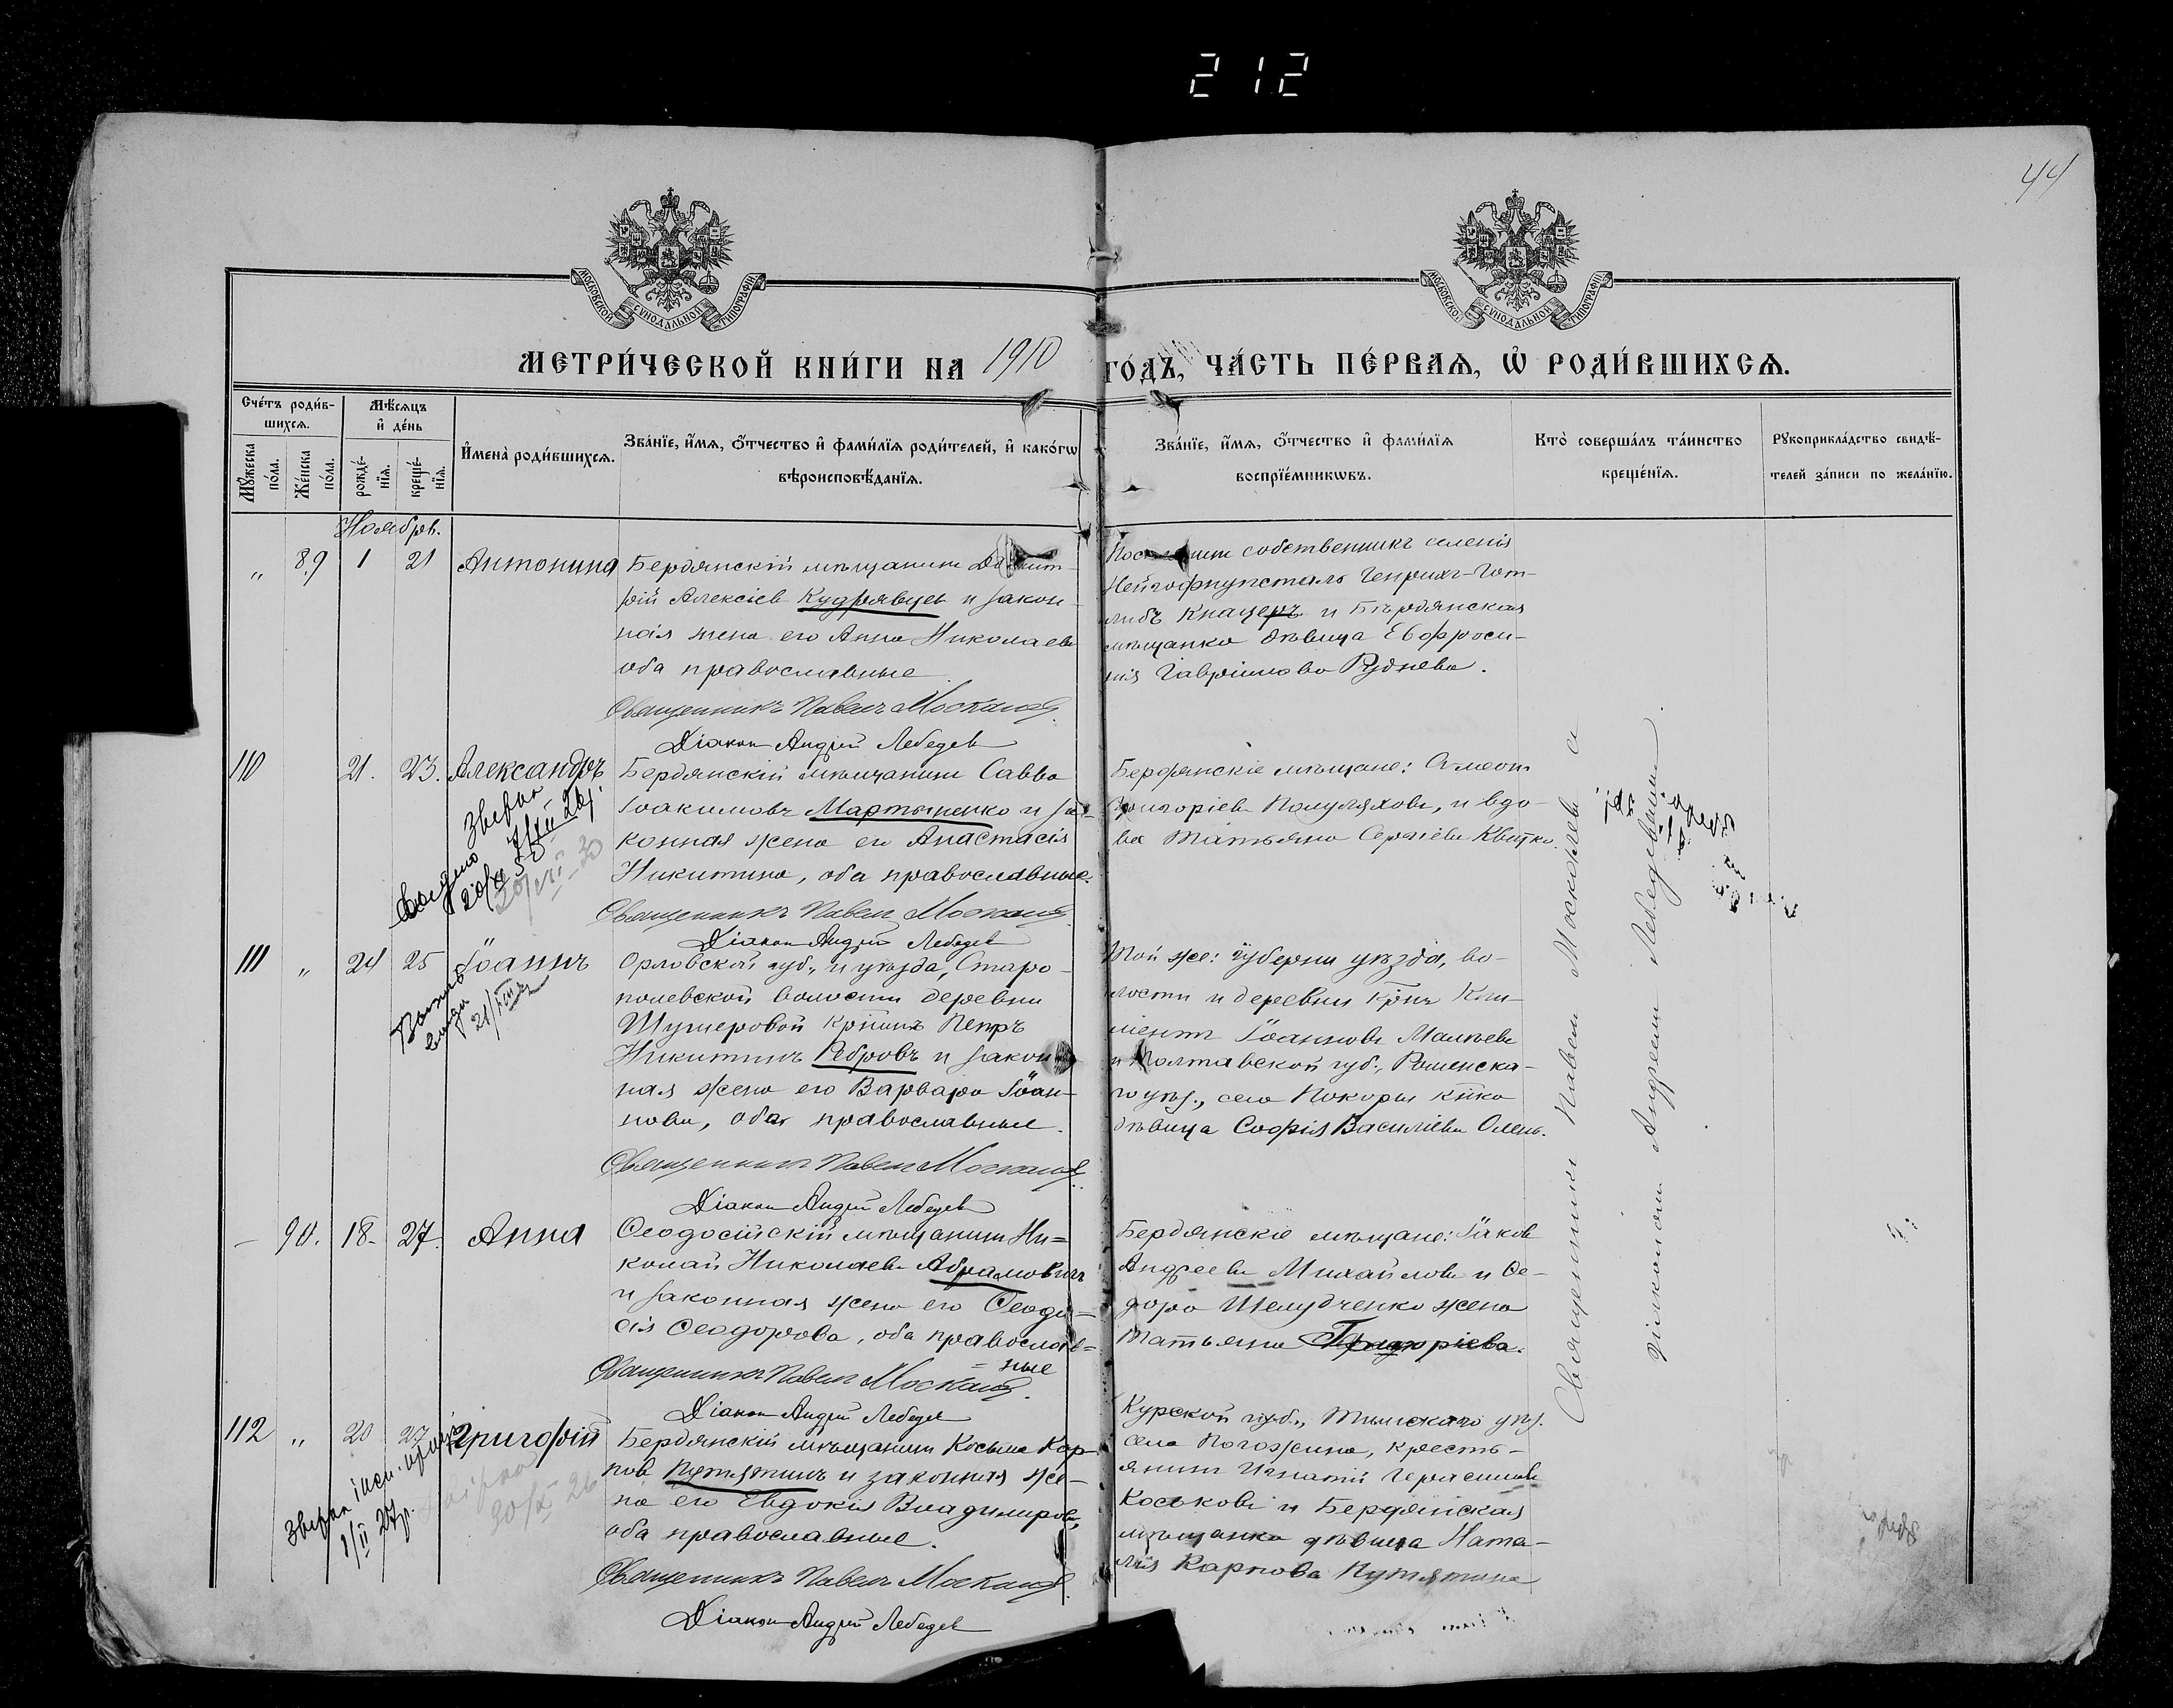 212
44
МОСКОВСКОЙ СѴНОДАЛЬНОЙ ТИПОГРАФІИ
МОСКОВСКОЙ СѴНОДАЛЬНОЙ ТИПОГРАФІИ
МЕТРИ́ЧЕСКОЙ КНИ́ГИ НА 1910 ГО́ДЪ, ЧА́СТЬ ПЕ́РВАѦ, Ѡ҆ РОДИ́ВШИХСѦ.
Сче́тъ роди́в-
шихсѧ.
Мѣ́сѧцъ
и҆ де́нь
Мꙋ́жеска
по́ла.
Же́нска
по́ла.
рожде́-
нїѧ.
креще́-
нїѧ.
И҆мена̀ роди́вшихсѧ.
Зва́нїе, и҆́мѧ, ѻ҆́тчество и҆ фами́лїѧ роди́телей, и҆ како́гѡ
вѣроисповѣ́данїѧ.
Зва́нїе, и҆́мѧ, ѻ҆́тчество и҆ фами́лїѧ
воспрїе́мникѡвъ.
Кто̀ соверша́лъ та́инство
креще́нїѧ.
Рꙋкоприкла́дство свидѣ́-
телей за́писи по жела́нїю.
Ноябрь.
„ 89 1 21 Антонина
Бердянскій мѣщанинъ
рій Алексіев Кудрявцев и закон-
ная жена его Анна Николаева
оба православные
Священникъ Павелъ Москалев
Діакон Андрей Лебедев
собственникъ селенія
Генрих-Гот-
либъ Кнауеръ и Бердянская
мѣщанка дѣвица Евфроси-
нія Гавріилова Руднева.
110 21. 23. Александръ
Бердянскій мѣщанинъ Савва
Іоакимовъ Мартыненко и за-
конная жена его Анастасія
Никитина, оба православные.
Священникъ Павелъ Москалев
Діакон Андрей Лебедев
Бердянскіе мѣщане:
Григоріев Полуляхов, и вдо-
ва Татьяна Сергіева Квитко.
111 „ 24 25 Іоаннъ
Орловской губ., и уѣзда, Старо-
полевской волости деревни
Шумеровой крнинъ Петръ
Никитинъ Ребровъ и закон-
ная жена его Варвара Іоан-
нова, оба православные.
Священник Павел Москалев
Діакон Андрей Лебедев
Той же: губерни уѣзда, во-
лости и деревни крнъ Кли-
ментъ Іоаннов Малѣев
и Полтавской губ., Роменска-
го уѣз., села
дѣвица Софія Василіева Олень.
– 90. 18. 27. Анна
Ѳеодосійскій мѣщанинъ Ни-
колай Николаев Абрамович
и законная жена его Ѳеодо-
сія Ѳеодорова, оба православ-
ные
Священникъ Павелъ Москалев
Діакон Андрей Лебедев
Бердянскіе мѣщане: Іаков
Андреев Михайлов и Ѳе-
дора Шелудченко жена
Татьяна Григоріева.
112 „ 20 27 Григорій
Бердянскій мѣщанинъ Косьма Кар-
пов Путятинъ и законная же-
на его Евдокія Владимирова,
оба православные.
Священникъ Павелъ Москалев
Діакон Андрей Лебедев
Курской губ., Тимскаго уѣз.
села Погожина, кресть-
янинъ Игнатій Герасимов
Коськов и Бердянская
мѣщанка дѣвица Ната-
лія Карпова Путятина
Священник Павел Москалев с
Діаконом Андреем Лебедевым.